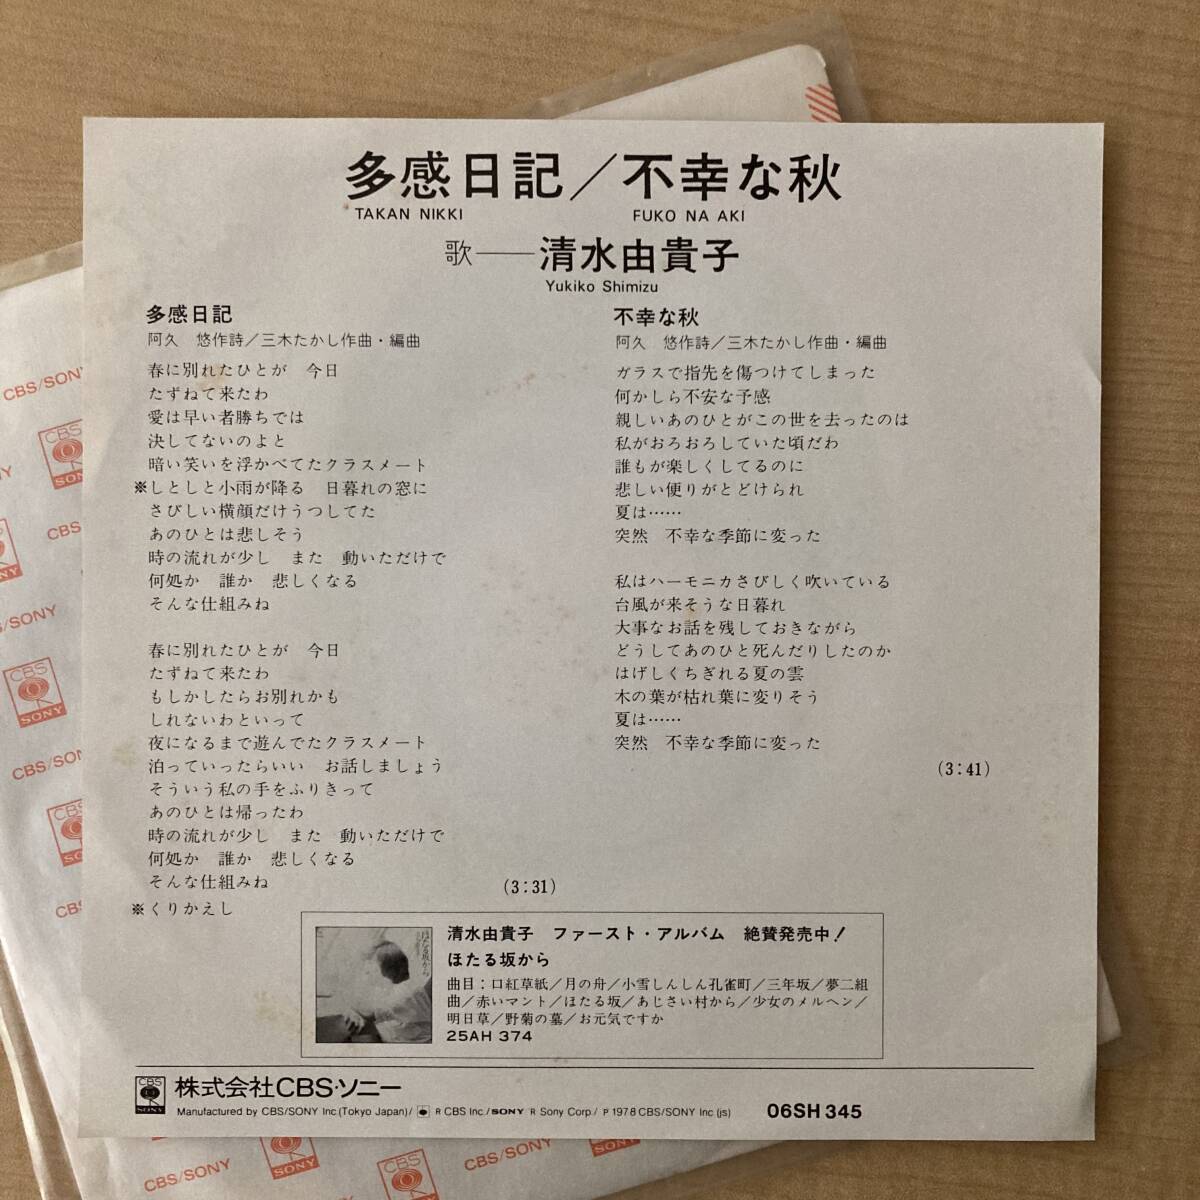 多感日記／不幸な秋
TAKAN NIKKI FUKO NA AKI
歌──清水由貴子
Yukiko Shimizu
多感日記
阿久　悠作詩／三木たかし作曲・編曲
春に別れたひとが　今日
たずねて来たわ
愛は早い者勝ちでは
決してないのよと
暗い笑いを浮かべてたクラスメート
※しとしと小雨が降る　日暮れの窓に
さびしい横顔だけうつしてた
あのひとは悲しそう
時の流れが少し　また　動いただけで
何処か　誰か　悲しくなる
そんな仕組みね
春に別れたひとが　今日
たずねて来たわ
もしかしたらお別れかも
しれないわといって
夜になるまで遊んでたクラスメート
泊っていったらいい　お話しましょう
そういう私の手をふりきって
あのひとは帰ったわ
時の流れが少し　また　動いただけで
何処か　誰か　悲しくなる
そんな仕組みね
(3:31)
※くりかえし
不幸な秋
阿久　悠作詩／三木たかし作曲・編曲
ガラスで指先を傷つけてしまった
何かしら不安な予感
親しいあのひとがこの世を去ったのは
私がおろおろしていた頃だわ
誰もが楽しくしてるのに
悲しい便りがとどけられ
夏は……
突然　不幸な季節に変った
私はハーモニカさびしく吹いている
台風が来そうな日暮れ
大事なお話を残しておきながら
どうしてあのひと死んだりしたのか
はげしくちぎれる夏の雲
木の葉が枯れ葉に変りそう
夏は……
突然　不幸な季節に変った
(3:41)
ほたる坂から
清水由貴子　ファースト・アルバム　絶賛発売中！
ほたる坂から
曲目：口紅草紙／月の舟／小雪しんしん孔雀町／三年坂／夢二組
曲／赤いマント／ほたる坂／あじさい村から／少女のメルヘン／
明日草／野菊の墓／お元気ですか
25AH 374
CBS SONY 株式会社CBS・ソニー
Manufactured by CBS/SONY Inc (Tokyo Japan)/ R CBS Inc./SONY R Sony Corp/ P 1978 CBS/SONY Inc (js) 06SH 345
CBS/SONY
CBS
CBS
/SONY
CBS
SONY
CBS/SONY
CBS
CBS/SONY
SONY
CBS/SONY
CBS